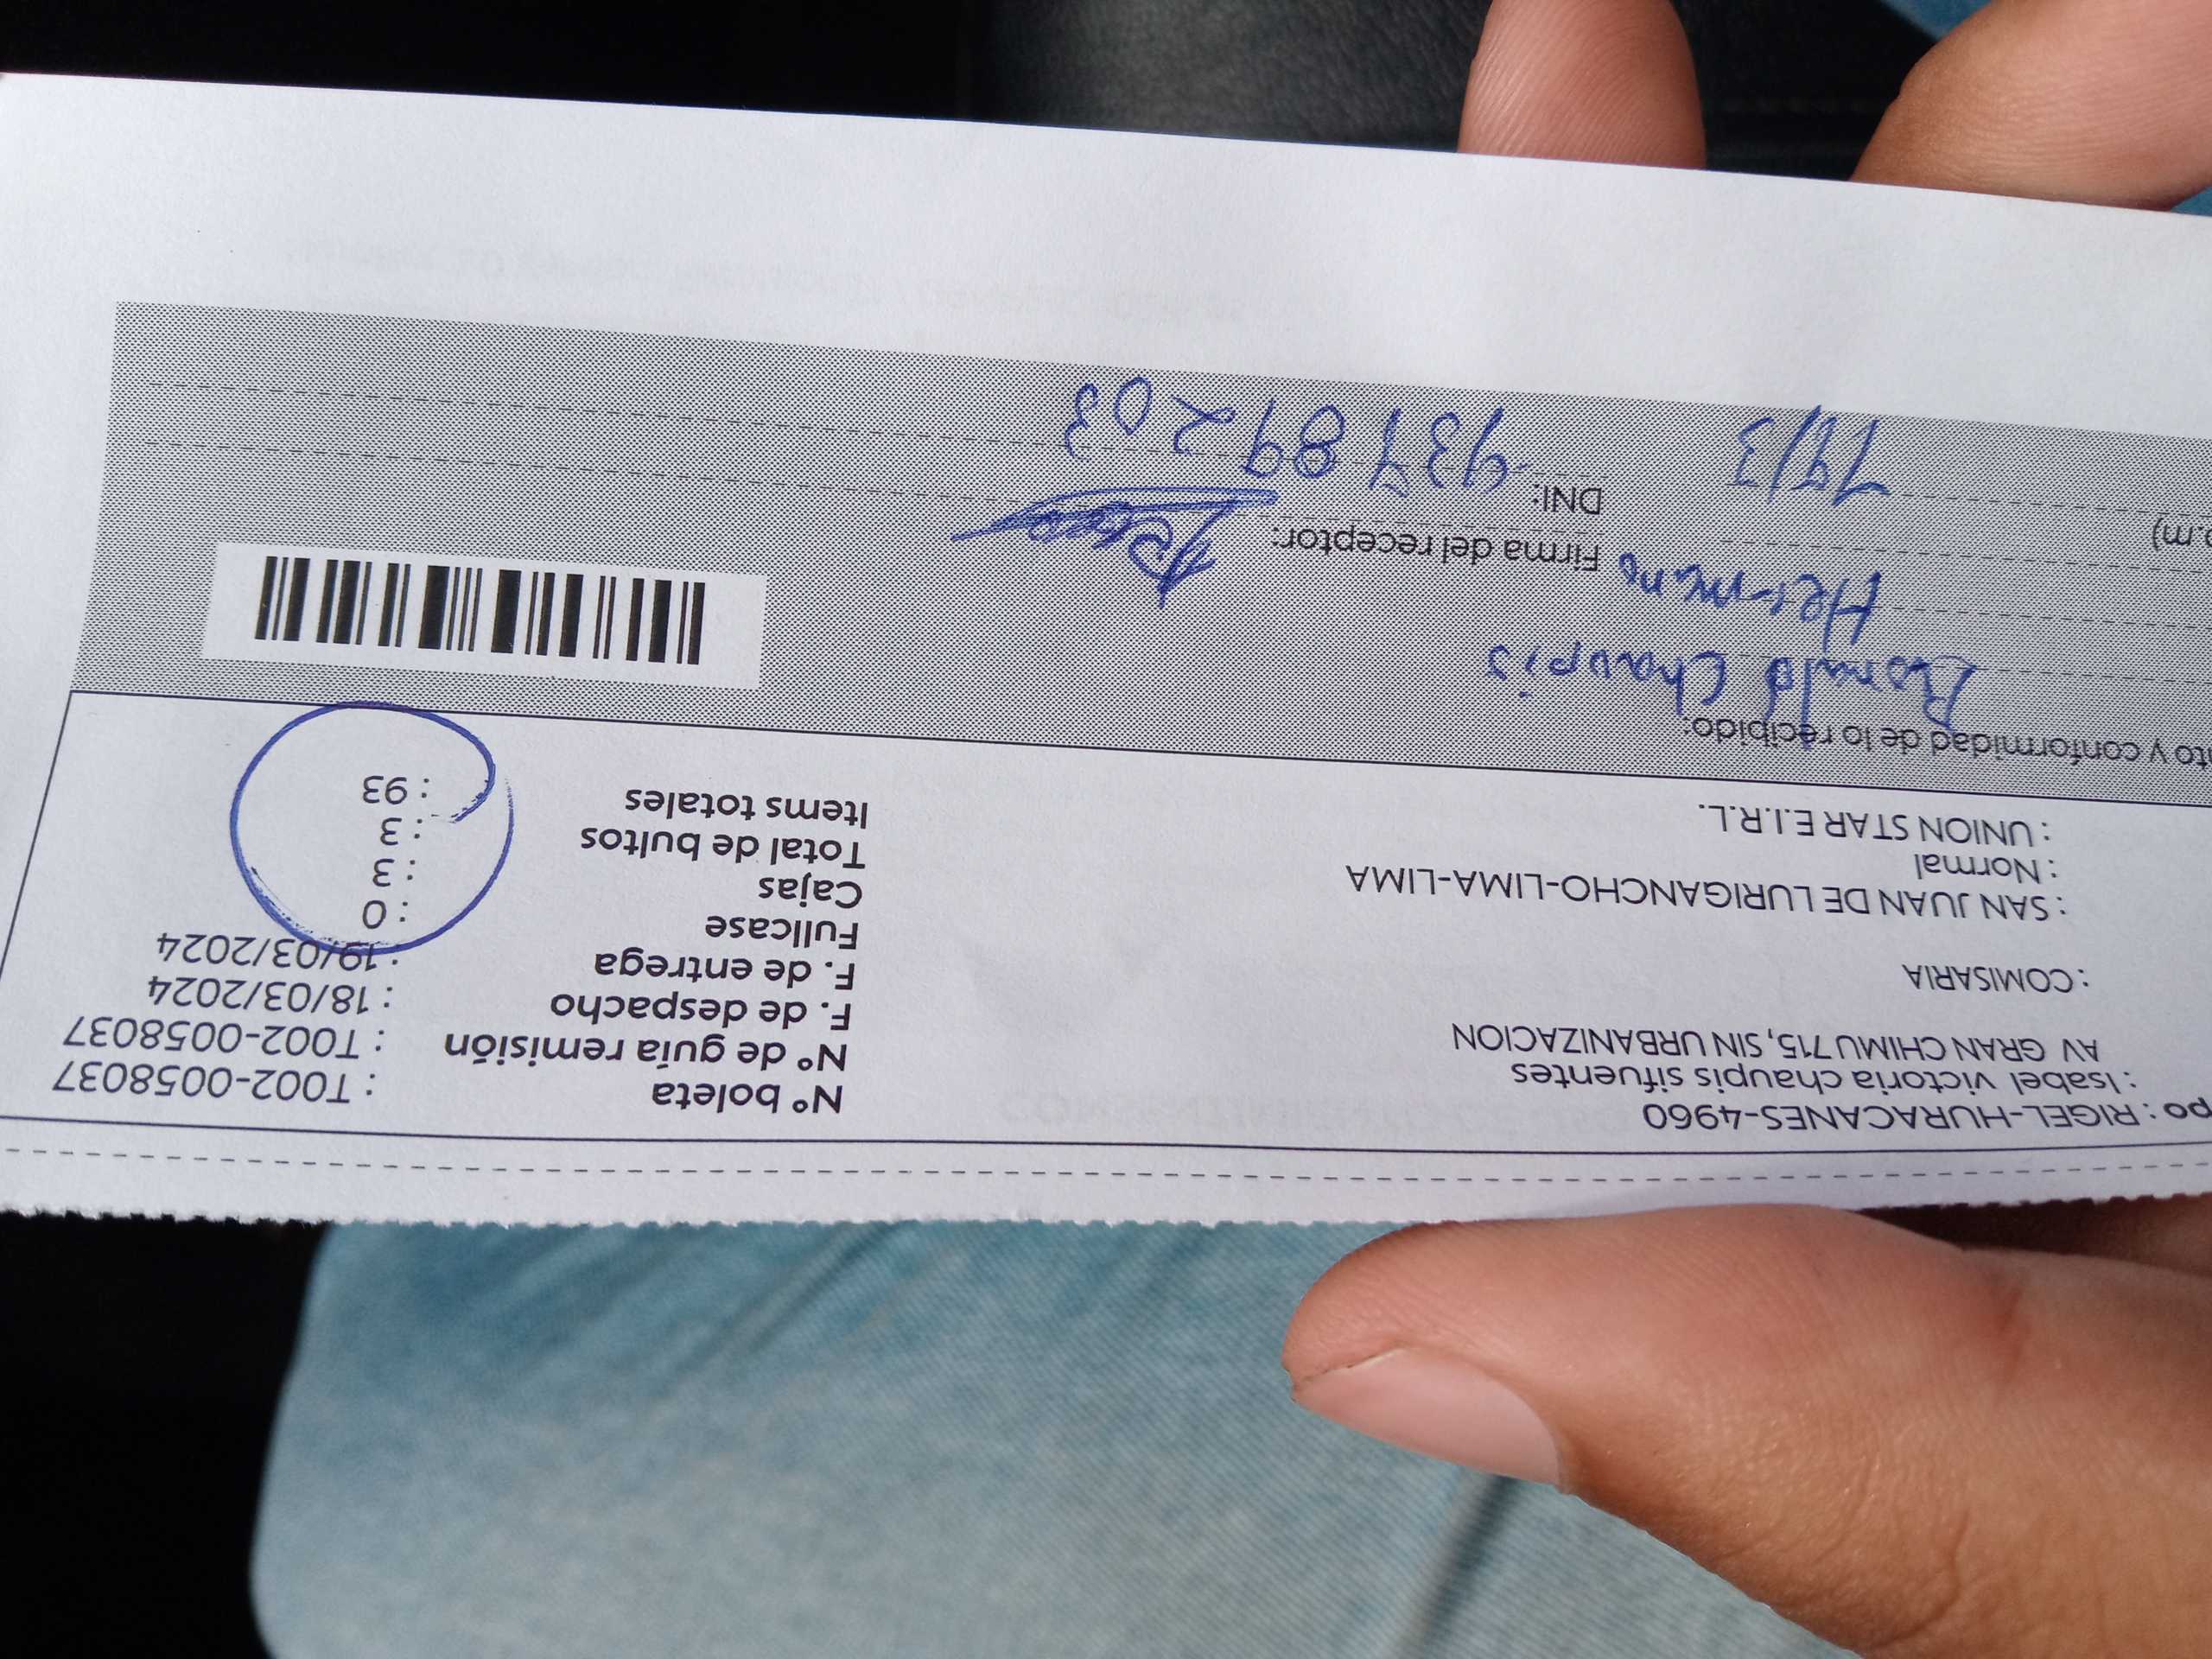 po : RIGEL-HURACANES-4960
: Isabel victoria chaupis sifuentes
AV GRAN CHIMU 715, SIN URBANIZACION
: COMISARIA
: SAN JUAN DE LURIGANCHO-LIMA-LIMA
: Normal
: UNION STAR E.I.R.L.
Nº boleta : T002-0058037
Nº de guía remisión : T002-0058037
F. de despacho : 18/03/2024
F. de entrega : 19/03/2024
Fullcase : 0
Cajas : 3
Total de bultos : 3
Items totales : 93
to y conformidad de lo recibido:
Chaupis
Hermano
Firma del receptor:
p.m) 19/3
DNI: